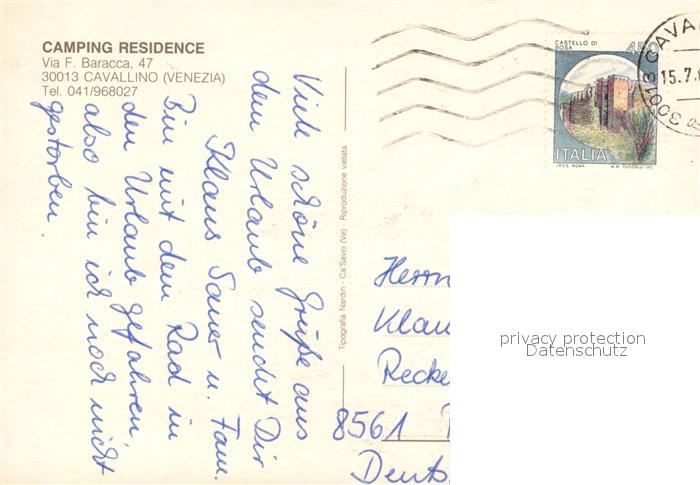 CAMPING RESIDENCE
Via F. Baracca, 47
30013 CAVALLINO (VENEZIA)
Tel. 041/968027
Viele schöne Grüße aus
dem Urlaub sendet Dir
Klaus Sauer u. Fam.
Bin mit dem Rad in
den Urlaub gefahren,
also bin ich noch nicht
gestorben.
Tipografia Nardin - Ca'Savio (Ve) - Riproduzione vietata
CASTELLO DI
BOSA
450
ITALIA
I.P.S. ROMA
M.M. TUCCELLI INC.
30013 CAVA
15.7.8
Herrn
Klau
Recke
8561
Deuts
privacy protection
Datenschutz